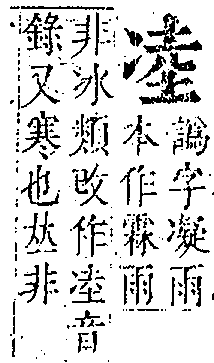 譌字凝雨
本作霖雨
非冰類改作音
錄又寒也𠀤非